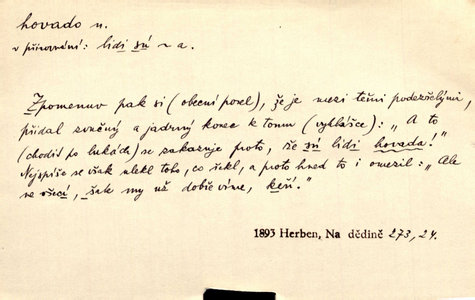 hovado n.
v přirovnání: lidi sú ~ a.
Zpomenuv pak si (obecní posel), že je mezi těmi podezřelými,
přidal svůčný a jadrný konec k tomu (vyhlášce): „A to
(chodit po lukách) se zakazuje proto, že sú lidi hovada!"
Nejspíše se však ulekl toho, co řekl, a proto hned to i omezil: „Ale
ne všecí, šak my už dobře víme, keří."
1893 Herben, Na dědině 273, 24.